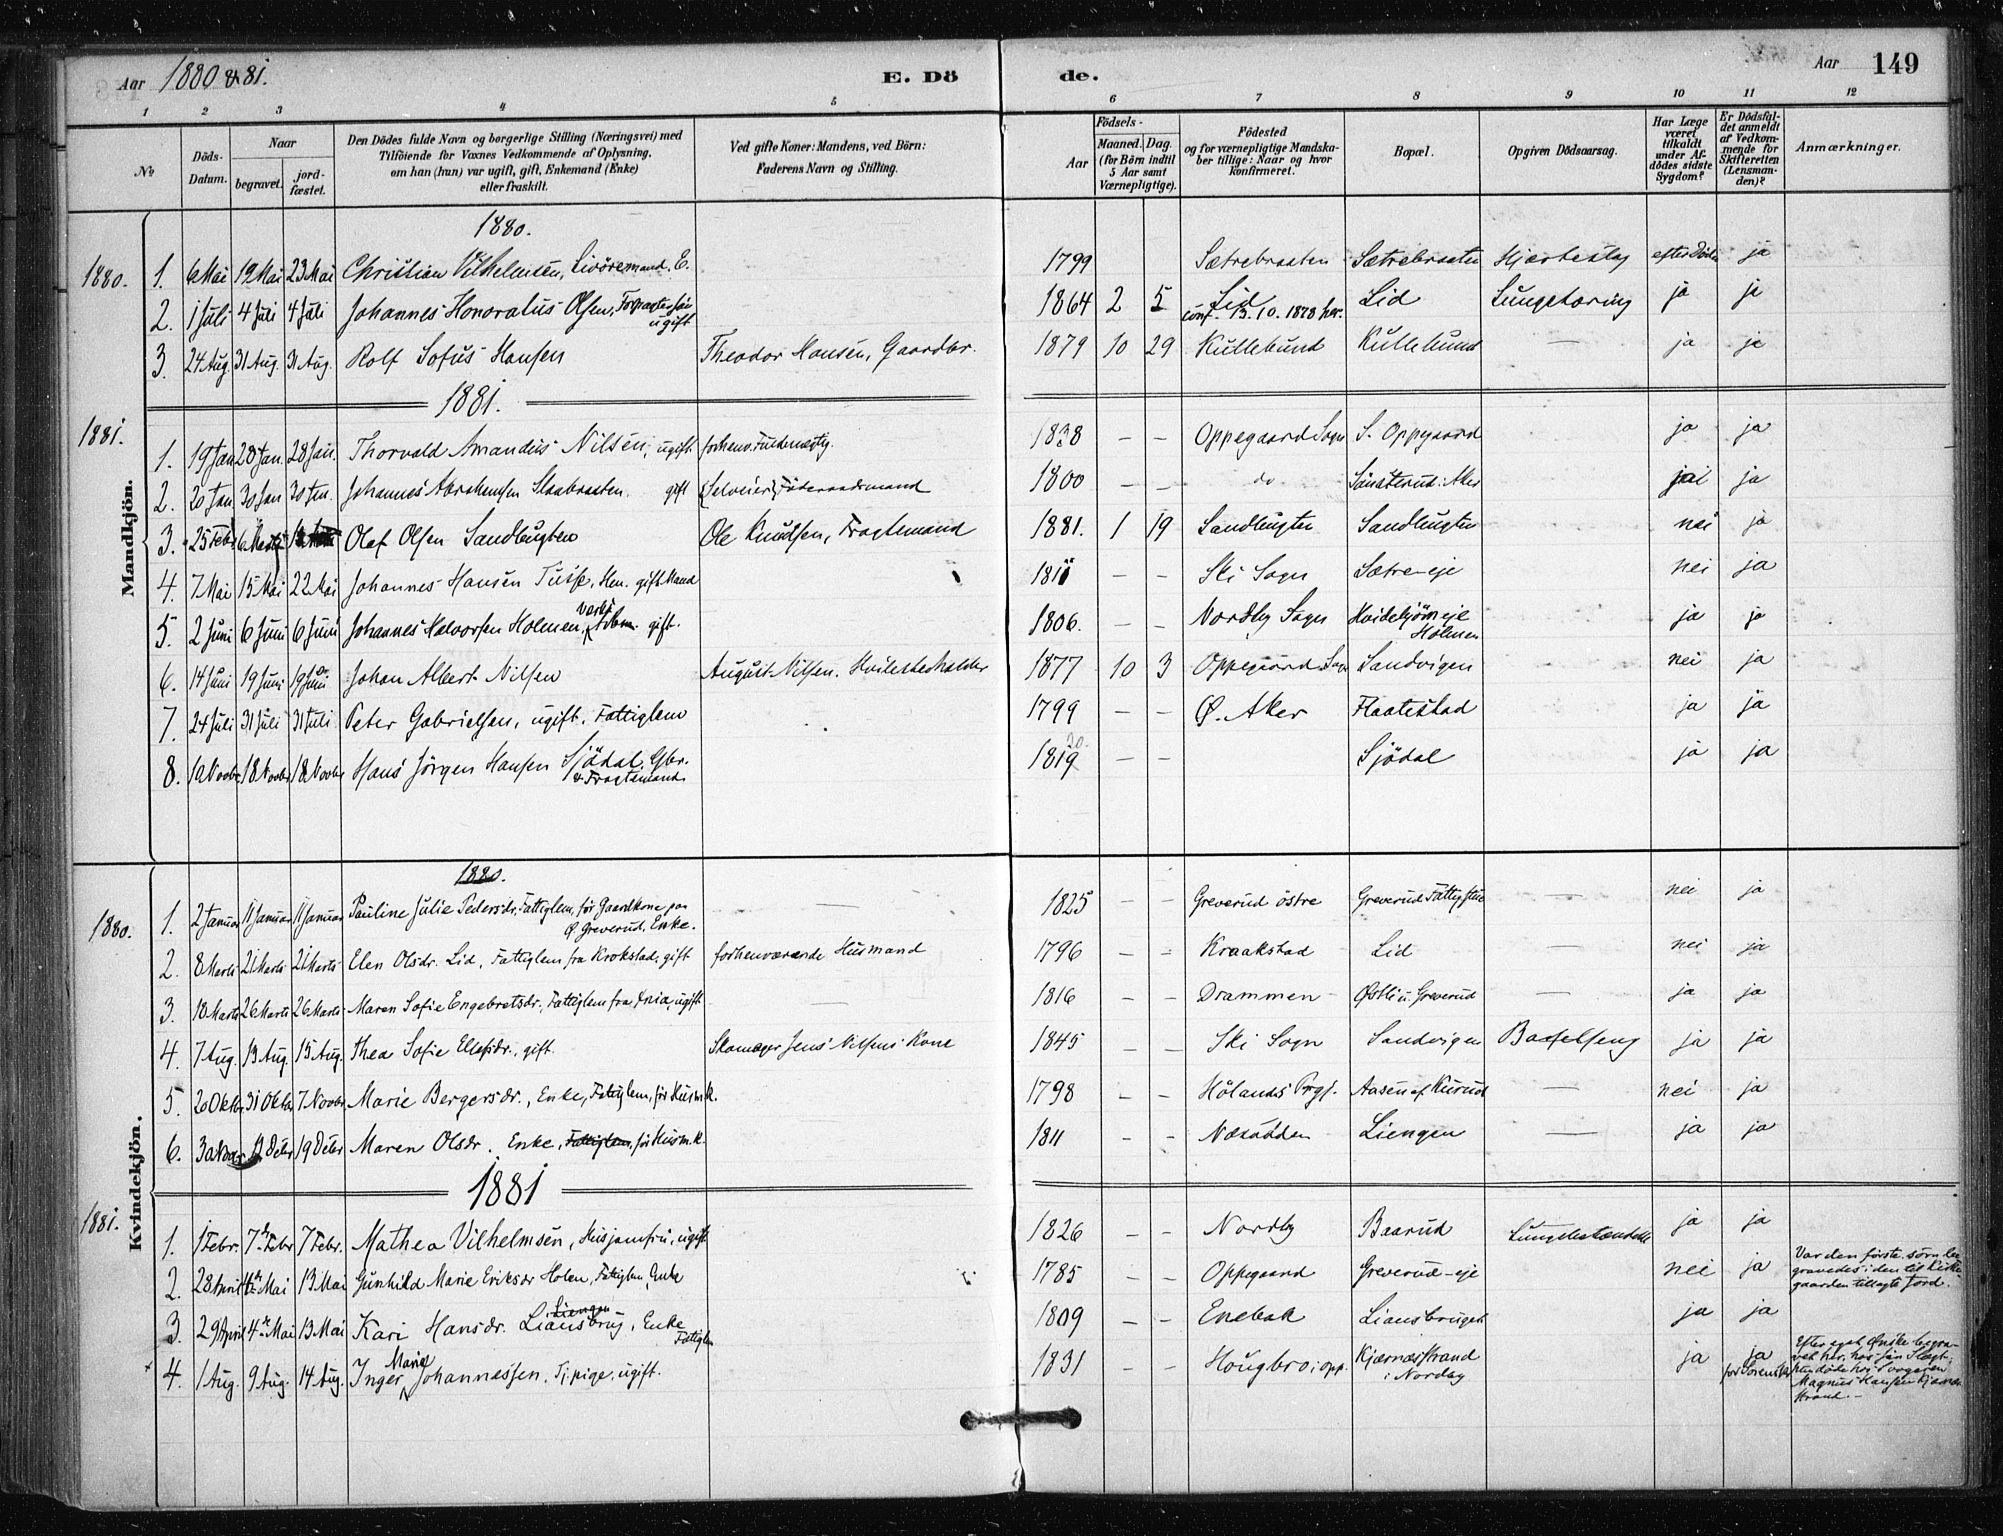 Aar 1880 & 81. E. Dö de. Aar 149
1 2 3 4 5 6 7 8 9 10 11 12
No
Döds-Datum.
Naar
begravet.
jord-fæstet.
Den Dödes fulde Navn og borgerlige Stilling (Næringsvei) med
Tilföiende for Voxnes Vedkommende af Oplysning,
om han (hun) var ugift, gift, Enkemand (Enke)
eller fraskilt.
Ved gifte Koner: Mandens, ved Börn:
Faderens Navn og Stilling.
Födsels-
Aar
Maaned. Dag.
(for Börn indtil
5 Aar samt
Værnepligtige).
Födested
og for værnepligtige Mandska-
ber tillige: Naar og hvor
konfirmeret.
Bopæl.
Opgiven Dödsaarsag.
Har Læge
været
tilkaldt
under Af-
dödes sidste
Sygdom?
Er Dödsfal-
det anmeldt
af Vedkom-
mende for
Skifteretten
(Lensman-
den)?
Anmærkninger.
Mandkjön.
1880.
1880. 1. 6 Mai 19 Mai 23 Mai Christian Vilhelmsen, E. 1799 Sætrebraaten Sætrebraaten Hjerteslag efter Döden ja
2. 1 Juli 4 Juli 4 Juli Johannes Honoratus Olsen, ugift 1864 2 5 Lid conf. 13. 10. 1878 her. Lid Lungetæring ja ja
3. 24 Aug. 31 Aug. 31 Aug. Rolf Sofus Hansen Theodor Hansen, Gaardbr. 1879 10 29 Kullebund Kullebund — ja ja
1881.
1881. 1. 19 Jan 28 Jan. 28 Jan. Thorvald Amandus Nilsen, ugift forhenv. 1838 — — Oppegaard Sogn S. Oppegaard ja ja
2. 20 Jan 30 Jan 30 Jan. Johannes Abrahamsen Slaabraaten gift Selveier, Föderaadsmand 1800 — — do Sönsterud i Aker ja
3. 25 Febr 6 Marts Olaf Olsen Sandbugten Ole Knudsen, Fragtemand 1881. 1 19 Sandbugten Sandbugten nei ja
4. 7 Mai 15 Mai 22 Mai Johannes Hansen Tusse, Hm. gift Mand — — Ski Sogn Sætre-eje nei ja
5. 2 Juni 6 Juni 6 Juni Johannes Halvorsen Holmen, gift. 1806. — — Nordby Sogn Hvidebjörn eje Holmen ja ja
6. 14 Juni 19 Juni 19 Juni Johan Albert Nilsen August Nilsen. 1877 10 3 Oppegaard Sogn Sandvigen nei ja
7. 24 Juli 31 Juli 31 Juli Peter Gabrielsen, ugift, Fattiglem 1799 — — Ø. Aker Flaatestad ja ja
8. 10 Novbr 18 Novbr 18 Novbr Hans Jörgen Hansen Sjödal, Gbr. & Fragtemand 1819 — — Sjödal ja ja
Kvindekjön.
1880.
1880. 1. 2 Januar 11 Januar 11 Januar Pauline Julie Pedersdr, Fattiglem, för Gaardkone paa Ø Greverud, Enke. — 1825 — — Greverud östre Greverud Fattigstue — nei ja
2. 8 Marts 21 Marts 21 Marts Elen Olsdr. Lid, Fattiglem fra Krokstad, gift forhenværende Husmand 1796 — — Kraakstad Lid — nei ja
3. 18 Marts 26 Marts 26 Marts Maren Sofie Engebretsdr. Fattiglem fra ugift — 1816 — — Drammen Østli u. Greverud — ja ja
4. 7 Aug. 13 Aug. 15 Aug. Thea Sofie Ellefsdr., gift. Skomager Jens Nilsens Kone 1845 — — Ski Sogn Sandvigen Barselseng ja ja
5. 20 Oktbr 31 Oktbr 7 Novbr Marie Bergersdr., Enke, Fattiglem, för Husm.k. 1798 — — Hölands Prgj. Aasen af Kurud — nei ja
6. 30 Novbr 12 Decbr 19 Decbr Maren Olsdr. Enke, Fattiglem, för Husm.k. 1811 — — Næsodden Liengen — ja ja
1881
1881. 1. 1 Febr. 7 Febr 7 Febr. Mathea Vilhelmsen, Husjomfru, ugift 1826 — — Nordby Baarud Lungebetændelse ja ja
2. 28 April 4de Mai 13 Mai Gunhild Marie Eriksdr Holen, Fattiglem, Enke 1785 — — Oppegaard Greverud-eje nei ja Var den förste, som be-
gravedes i den til Kirke-
gaarden tillagte Jord.
3. 29 April 4de Mai 13 Mai Kari Hansdr. Liansbrug, Liengen Enke Fattiglem 1809 — — Enebak Liansbruget ja ja
4. 1 Aug. 9 Aug. 14 Aug. Inger Marie Johannessen, Tj.pige, ugift. 1831 — — Hougbro i Opp. Kjærnæsstrand i Nordby ja ja Efter eget Ønske begra-
vet her, hos sin Slægt.
hun döde hos Svogeren
Magnus Hansen Kjærnæs-
strand. —